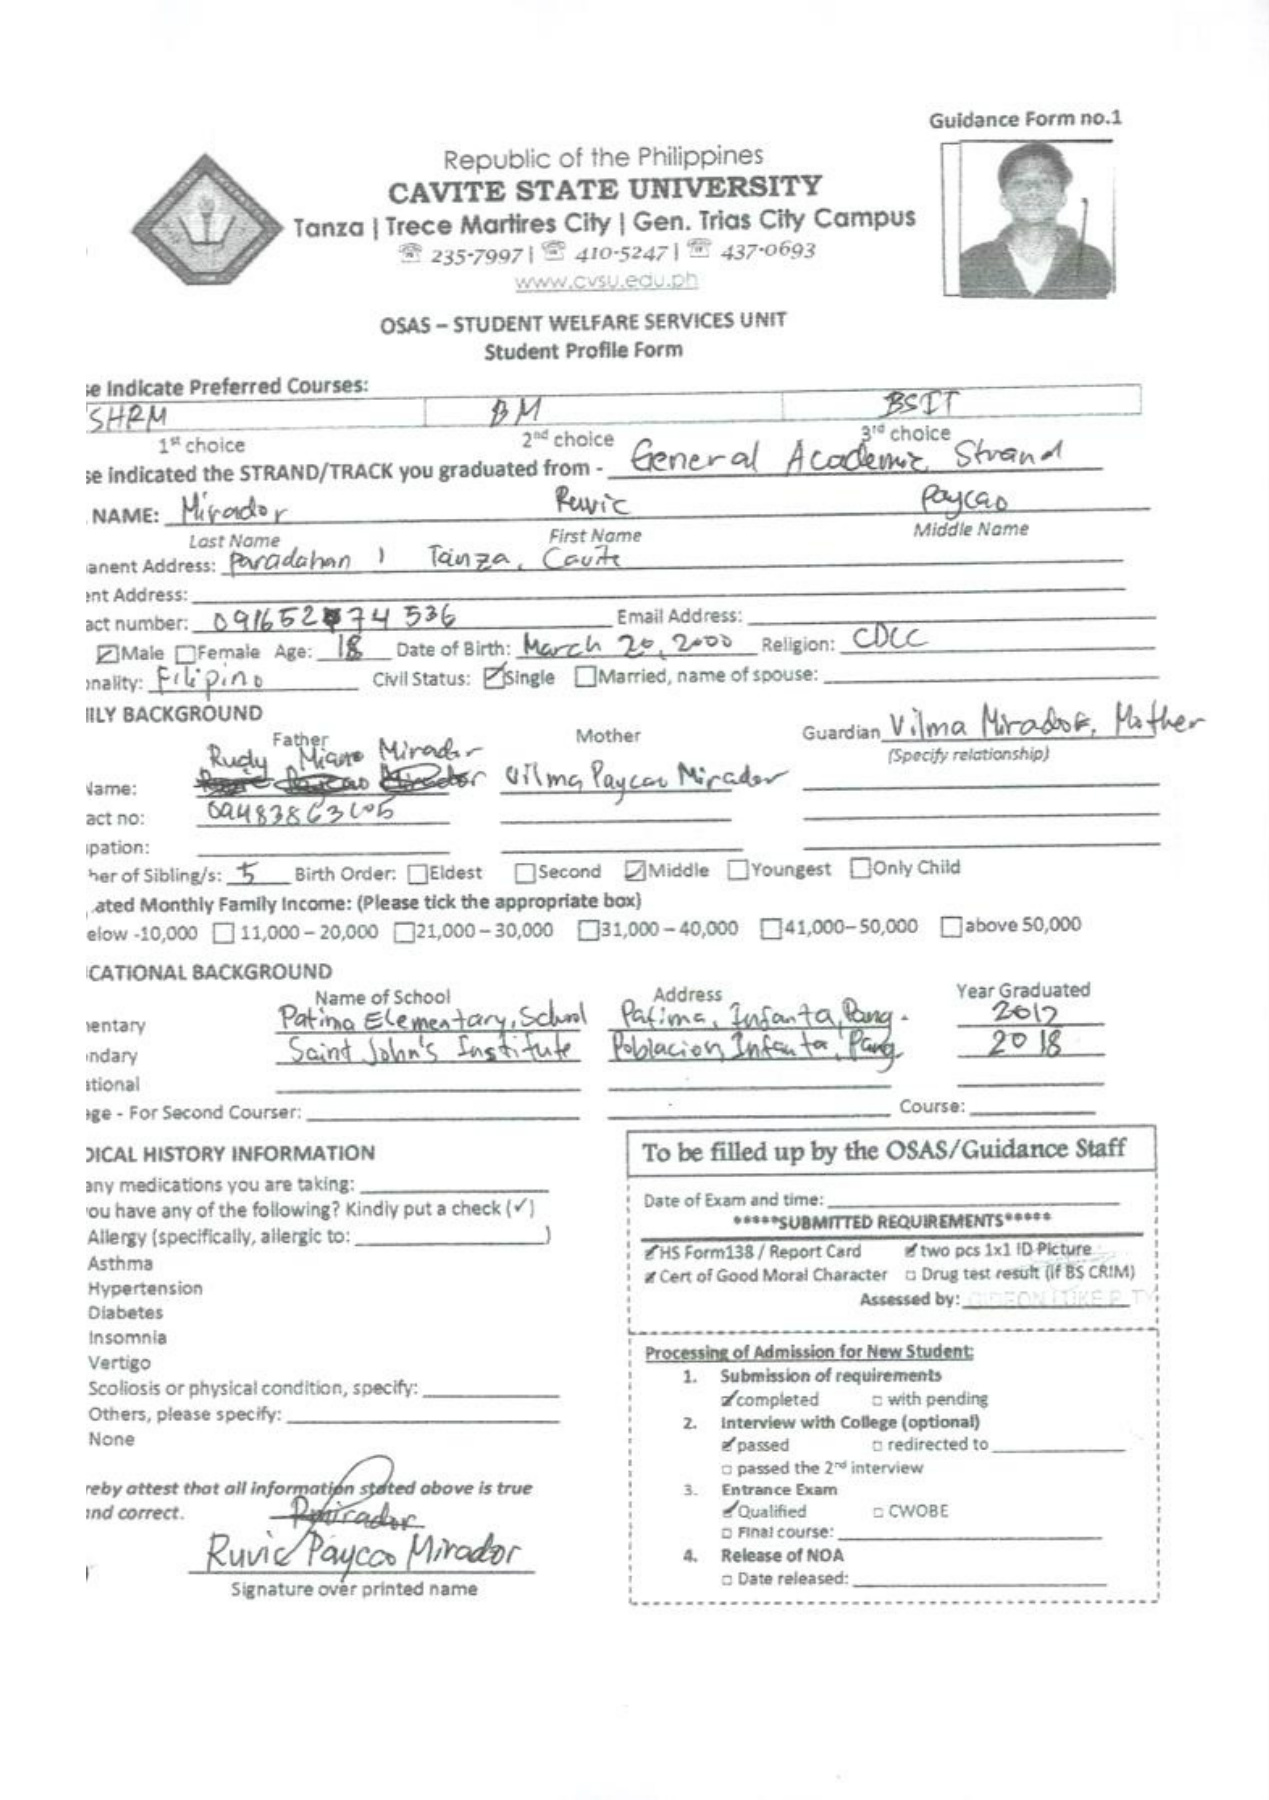 Guidance Form no.1
Republic of the Philippines
CAVITE STATE UNIVERSITY
Tanza | Trece Martires City | Gen. Trias City Campus
☏ 235-7997 | ☏ 410-5247 | ☏ 437-0693
www.cvsu.edu.ph
OSAS – STUDENT WELFARE SERVICES UNIT
Student Profile Form
se Indicate Preferred Courses:
SHRM BM BSIT
1st choice 2nd choice 3rd choice
se indicated the STRAND/TRACK you graduated from - General Academic Strand
NAME: Mirador Ruvic Paycao
Last Name First Name Middle Name
anent Address: Paradahan 1 Tanza, Cavite
ent Address:
act number: 091652 74 536 Email Address:
☑Male ☐Female Age: 18 Date of Birth: March 20, 2000 Religion: CDCC
onality: Filipino Civil Status: ☑Single ☐Married, name of spouse:
ILY BACKGROUND
Father Mother Guardian Vilma Mirador, Mother
(Specify relationship)
Rudy Mirador
Name: Vilma Paycao Mirador
act no:
ipation:
ber of Sibling/s: 5 Birth Order: ☐Eldest ☐Second ☑Middle ☐Youngest ☐Only Child
ated Monthly Family Income: (Please tick the appropriate box)
elow -10,000 ☐ 11,000 – 20,000 ☐21,000 – 30,000 ☐31,000 – 40,000 ☐41,000– 50,000 ☐above 50,000
CATIONAL BACKGROUND
Name of School Address Year Graduated
entary Patima Elementary, School Patima, Infanta, Pang. 2012
ndary Saint John's Institute Poblacion Infanta, Pang. 2018
ational
ege - For Second Courser: Course:
DICAL HISTORY INFORMATION
any medications you are taking:
you have any of the following? Kindly put a check (✓)
Allergy (specifically, allergic to: )
Asthma
Hypertension
Diabetes
Insomnia
Vertigo
Scoliosis or physical condition, specify:
Others, please specify:
None
reby attest that all information stated above is true
and correct.
Rmirador
Ruvic Paycao Mirador
Signature over printed name
To be filled up by the OSAS/Guidance Staff
Date of Exam and time:
*****SUBMITTED REQUIREMENTS*****
☑HS Form138 / Report Card ☑two pcs 1x1 ID Picture
☑Cert of Good Moral Character ☐ Drug test result (if BS CRIM)
Assessed by: GIDEON LUKE P. TY
Processing of Admission for New Student:
1. Submission of requirements
☑completed ☐ with pending
2. Interview with College (optional)
☑passed ☐ redirected to
☐ passed the 2nd interview
3. Entrance Exam
☑Qualified ☐ CWOBE
☐ Final course:
4. Release of NOA
☐ Date released: